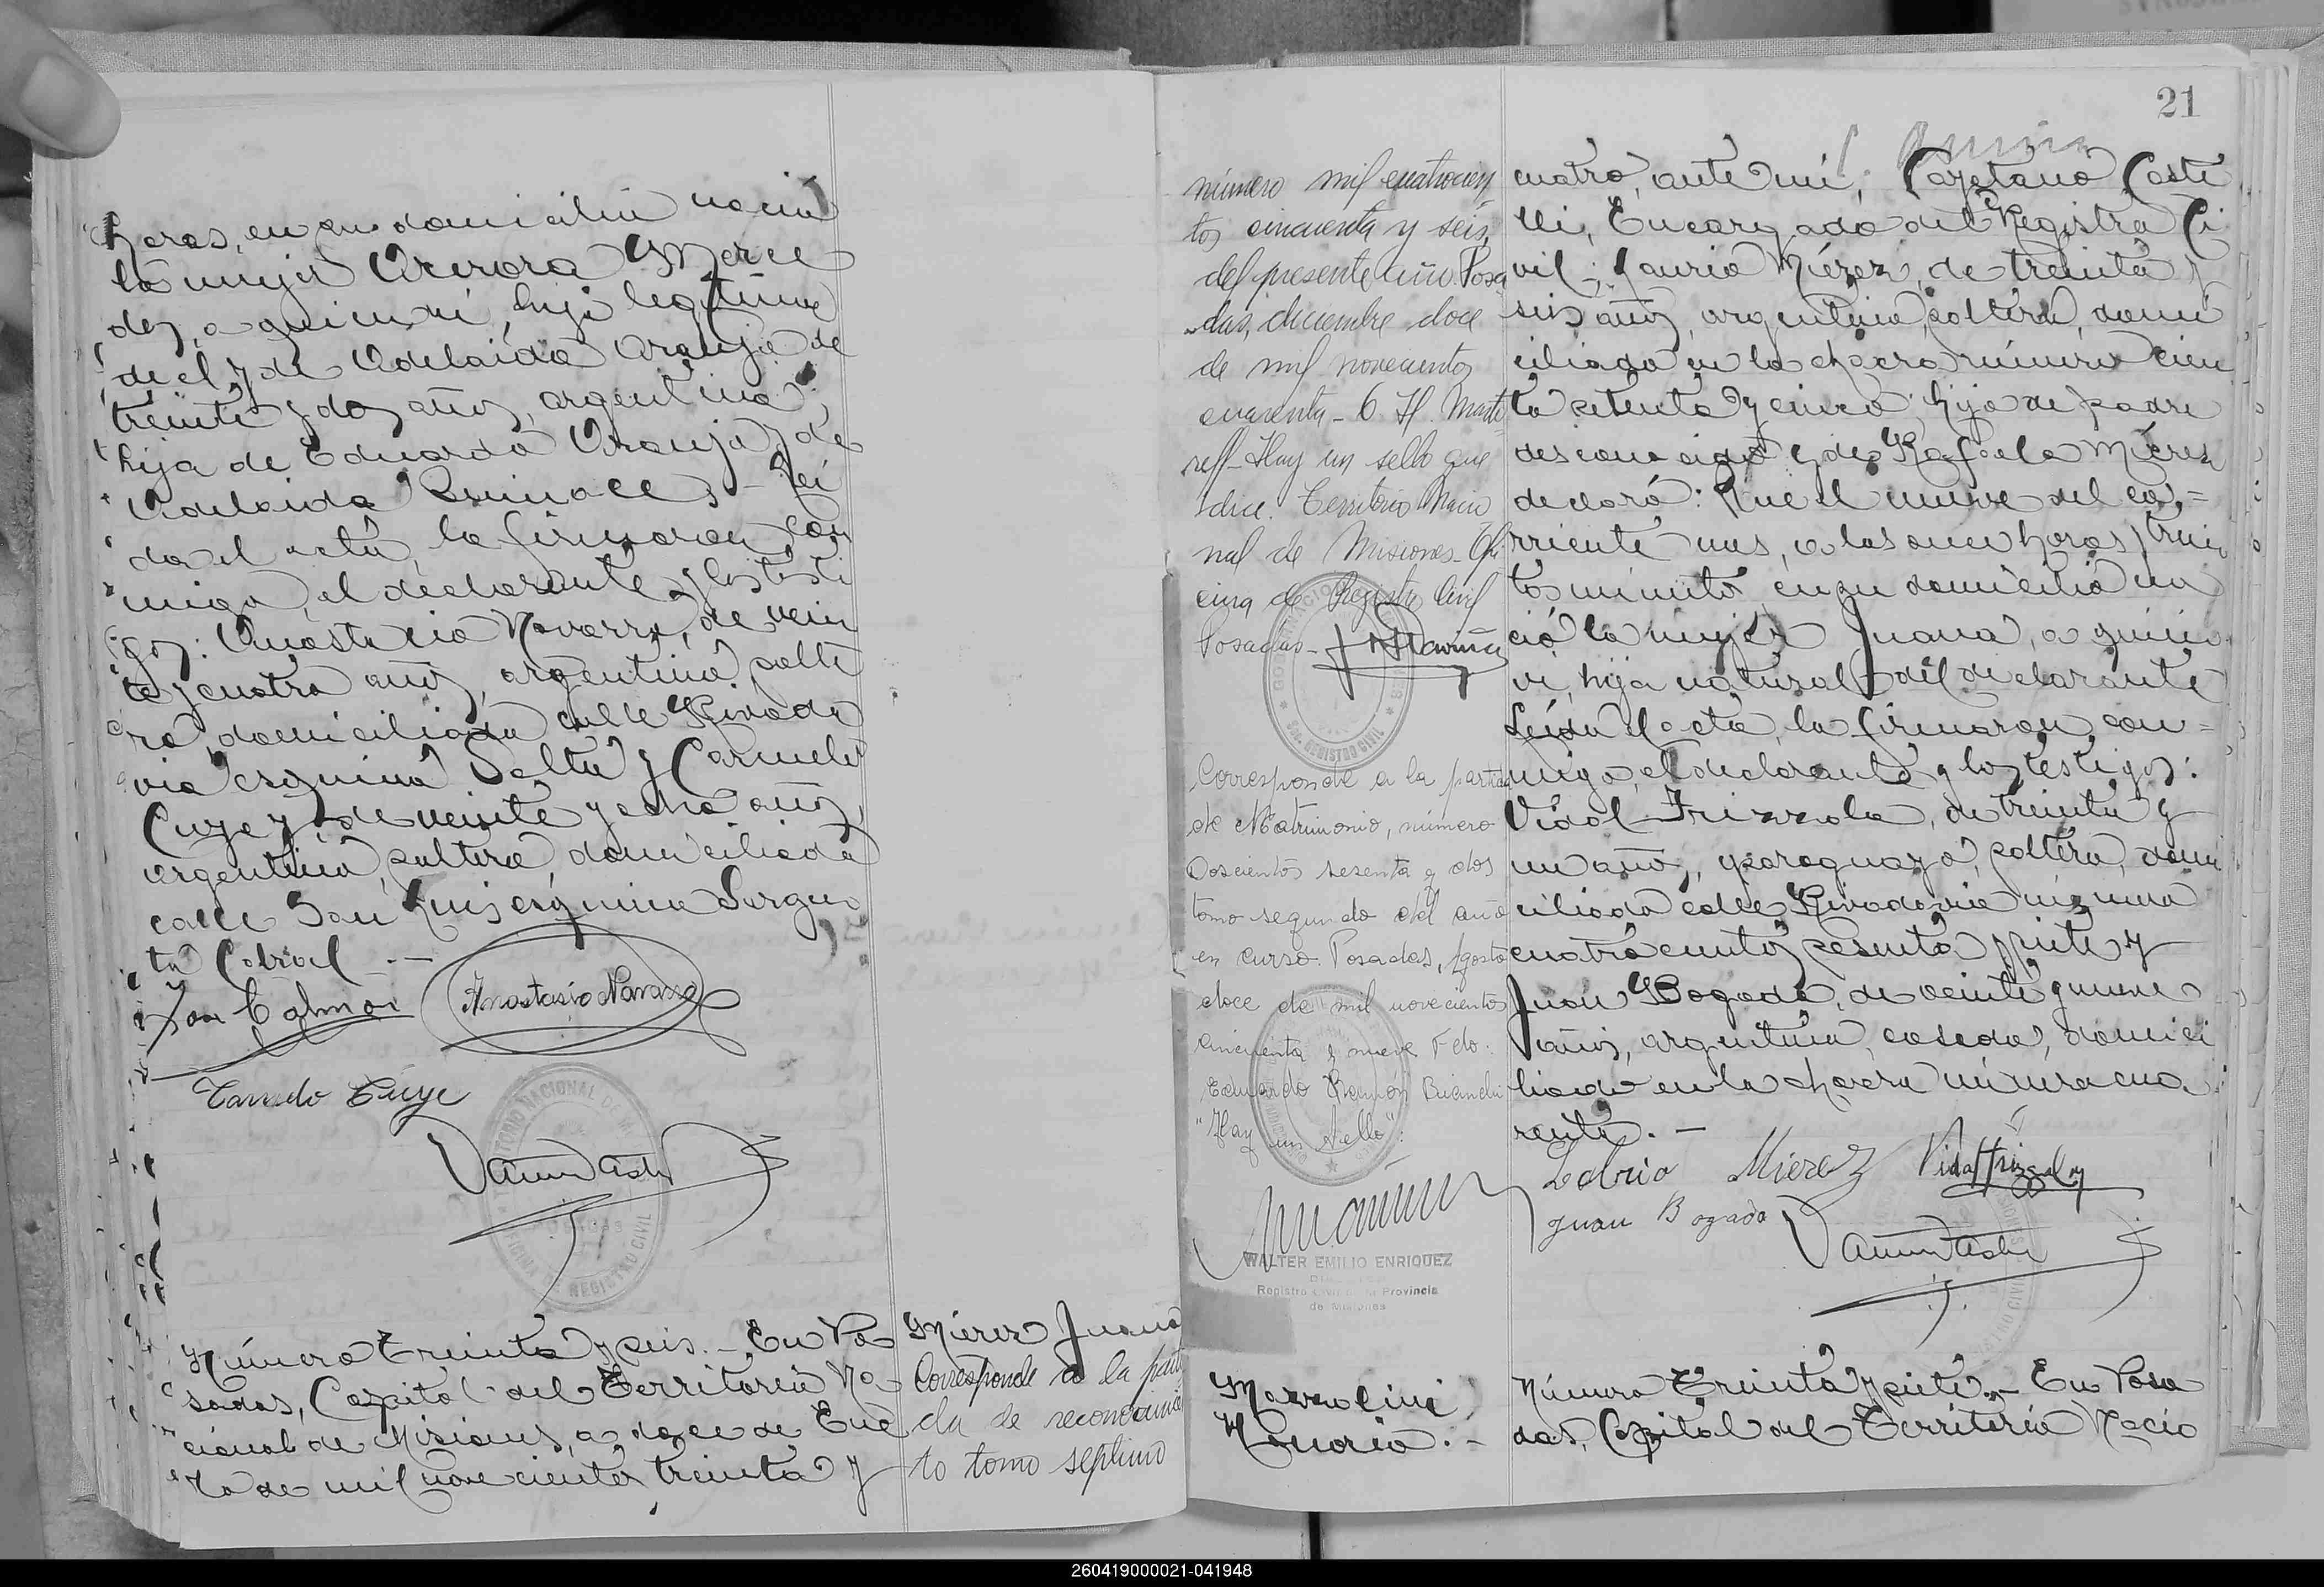 horas, en su domicilio nació
la mujer Aurora Merce
des, a quien vi, hija legítima
de él y de Adelaida Araujo de
treinta y dos años, argentina,
hija de Eduardo Araujo y de
Adelaida
da el acta, la firmaron con
migo, el declarante y los testi
gos: Anastacio Navarro, de vein
te y cuatro años, argentino, solte
ro, domiciliado calle Rivada
via esquina Salta y Carmelo
Cuye, de veinte y ocho años,
argentino, soltero, domiciliado
calle San Luis esquina Sargen
to Cabral --
Anastasio Navarro
Cuye
TERRITORIO NACIONAL DE MISIONES
OFICINA DE REGISTRO CIVIL
Número treinta y seis. - En Po
sadas, Capital del Territorio Na
cional de Misiones, a doce de Ene
ro de mil novecientos treinta y
Mierez Juana
Corresponde a la parti
da de reconocimien
to tomo séptimo
21
número mil cuatrocien
tos cincuenta y seis,
del presente año. Posa
das, diciembre doce
de mil novecientos
cuarenta - 6 H.
Hay un sello que
dice. Territorio Nacio
nal de Misiones - Ofi
cina de Registro Civil
Posadas -
REGISTRO CIVIL
Corresponde a la partida
de Matrimonio, número
Doscientos sesenta y dos
tomo segundo del año
en curso. Posadas, Agosto
doce de mil novecientos
cincuenta y nueve Fdo.
Eduardo Ramón
"Hay un sello":
WALTER EMILIO ENRIQUEZ
Registro Civil de la Provincia
de Misiones
cuatro, ante mí, Cayetano Caste
lli, Encargado del Registro Ci
vil; Laurio Miérez, de treinta y
seis años, argentino, soltero, domi
ciliado en la chacra número cien
to setenta y cinco hijo de padre
desconocido y de Rafaela Miérez
declaró: Que el nueve del co-
rriente mes, a las once horas y trein
tos minutos en su domicilio na
ció la mujer Juana, a quien
vi, hija natural del declarante
Leída el acta, la firmaron con-
migo, el declarante y los testigos:
Vidal Frizzola, de treinta y
un años, paraguayo, soltero, domi
ciliado calle Rivadavia número
cuatrocientos sesenta y siete y
Juan Bogado, de veinte y nueve
años, argentino, casado, domici
liado en la chacra número cua
renta. -
Mierez
Juan Bogado
Mazzolini
Honorio. -
Número treinta y siete. - En Posa
das, Capital del Territorio Nacio
260419000021-041948